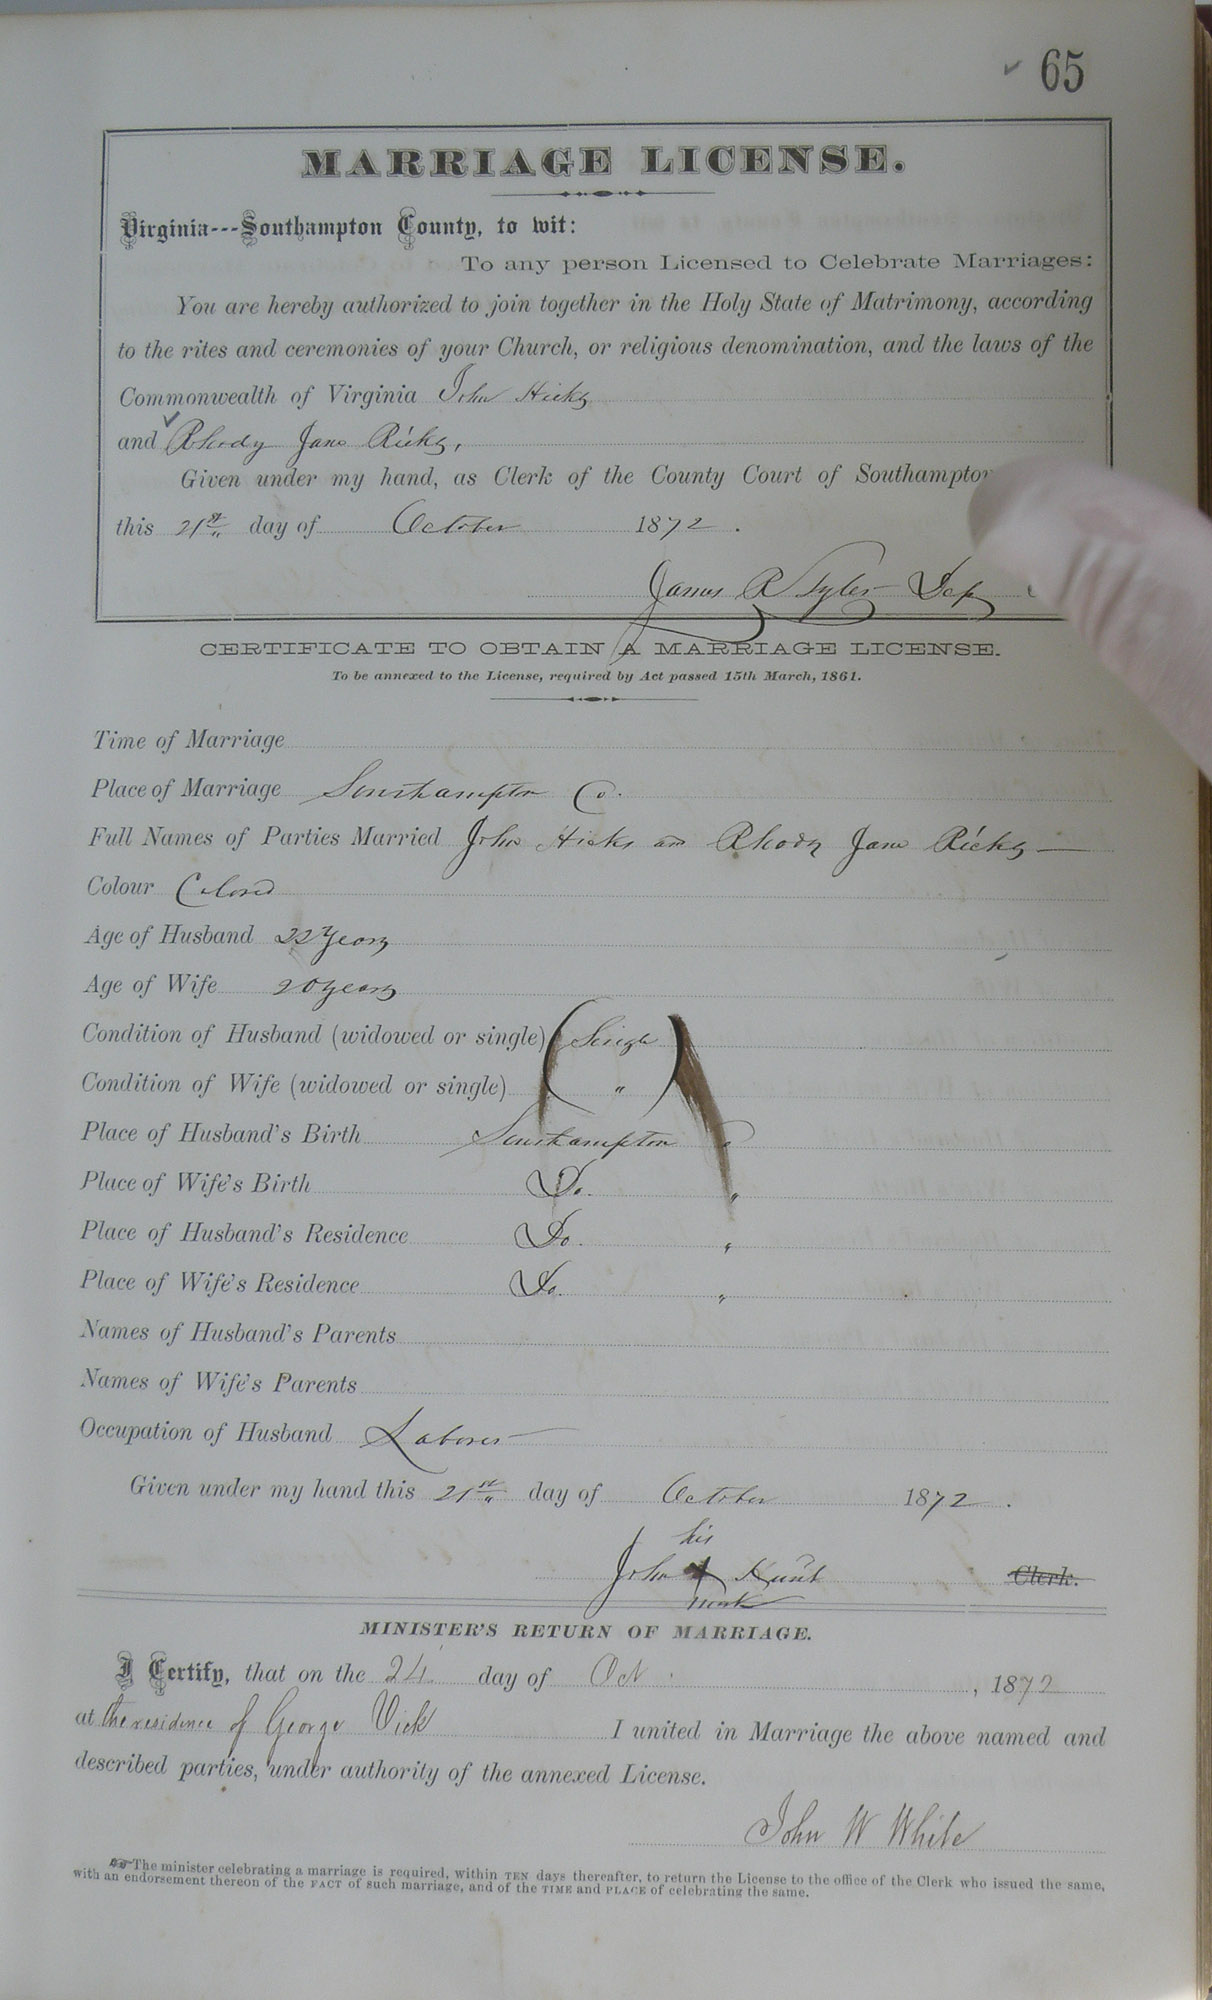 65
MARRIAGE LICENSE.
Virginia---Southampton County, to wit:
To any person Licensed to Celebrate Marriages:
You are hereby authorized to join together in the Holy State of Matrimony, according
to the rites and ceremonies of your Church, or religious denomination, and the laws of the
Commonwealth of Virginia John Hicks
and Rhody Jane Ricks,
Given under my hand, as Clerk of the County Court of Southampton
this 21st day of October 1872.
James R Tyler Dep
CERTIFICATE TO OBTAIN A MARRIAGE LICENSE.
To be annexed to the License, required by Act passed 15th March, 1861.
Time of Marriage
Place of Marriage Southampton Co.
Full Names of Parties Married John Hicks and Rhody Jane Ricks
Colour Colored
Age of Husband 22 Years
Age of Wife 20 years
Condition of Husband (widowed or single) (Single)
Condition of Wife (widowed or single) "
Place of Husband's Birth Southampton
Place of Wife's Birth Do. "
Place of Husband's Residence Do. "
Place of Wife's Residence Do. "
Names of Husband's Parents
Names of Wife's Parents
Occupation of Husband Laborer
Given under my hand this 21st day of October 1872.
his
John X Hunt Clerk.
mark
MINISTER'S RETURN OF MARRIAGE.
I Certify, that on the 24 day of Oct., 1872
at the residence of George Vick I united in Marriage the above named and
described parties, under authority of the annexed License.
John W White
The minister celebrating a marriage is required, within TEN days thereafter, to return the License to the office of the Clerk who issued the same,
with an endorsement thereon of the FACT of such marriage, and of the TIME and PLACE of celebrating the same.